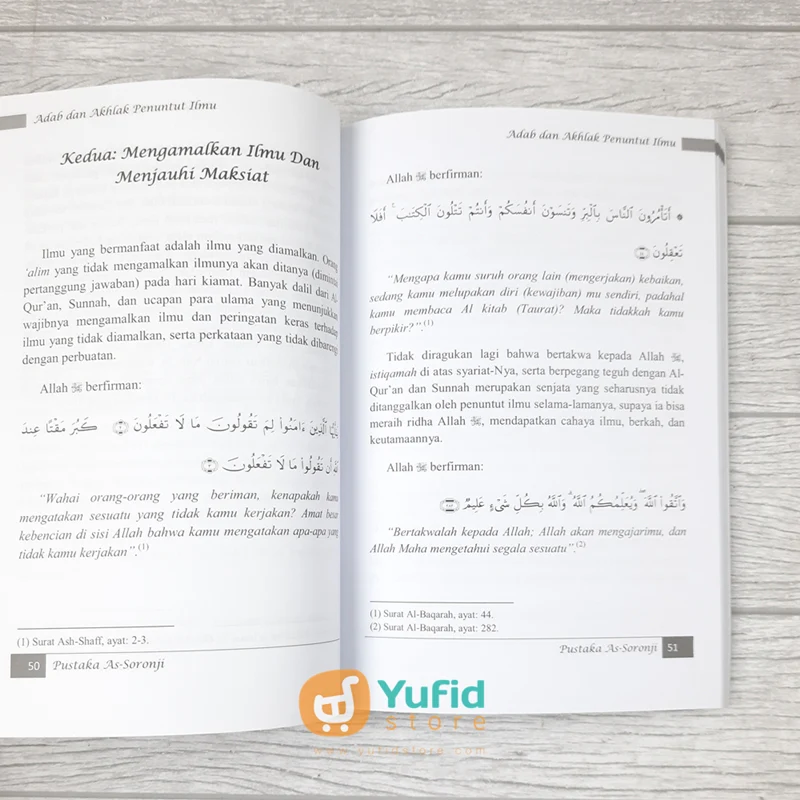 Adab dan Akhlak Penuntut Ilmu
Kedua: Mengamalkan Ilmu Dan
Menjauhi Maksiat
Ilmu yang bermanfaat adalah ilmu yang diamalkan. Orang
‘alim yang tidak mengamalkan ilmunya akan ditanya (dimintai
pertanggung jawaban) pada hari kiamat. Banyak dalil dari Al-
Qur’an, Sunnah, dan ucapan para ulama yang menunjukkan
wajibnya mengamalkan ilmu dan peringatan keras terhadap
ilmu yang tidak diamalkan, serta perkataan yang tidak dibarengi
dengan perbuatan.
Allah ﷻ berfirman:
ءَامَنُوا۟ لِمَ تَقُولُونَ مَا لَا تَفْعَلُونَ ۝ كَبُرَ مَقْتًا عِندَ
أَن تَقُولُوا۟ مَا لَا تَفْعَلُونَ ۝
“Wahai orang-orang yang beriman, kenapakah kamu
mengatakan sesuatu yang tidak kamu kerjakan? Amat besar
kebencian di sisi Allah bahwa kamu mengatakan apa-apa yang
tidak kamu kerjakan”.(1)
(1) Surat Ash-Shaff, ayat: 2-3.
50 Pustaka As-Soronji
Adab dan Akhlak Penuntut Ilmu
Allah ﷻ berfirman:
۞ أَتَأْمُرُونَ ٱلنَّاسَ بِٱلْبِرِّ وَتَنسَوْنَ أَنفُسَكُمْ وَأَنتُمْ تَتْلُونَ ٱلْكِتَـٰبَ ۚ أَفَلَا
تَعْقِلُونَ ۝
“Mengapa kamu suruh orang lain (mengerjakan) kebaikan,
sedang kamu melupakan diri (kewajiban) mu sendiri, padahal
kamu membaca Al kitab (Taurat)? Maka tidakkah kamu
berpikir?”.(1)
Tidak diragukan lagi bahwa bertakwa kepada Allah ﷻ,
istiqamah di atas syariat-Nya, serta berpegang teguh dengan Al-
Qur’an dan Sunnah merupakan senjata yang seharusnya tidak
ditanggalkan oleh penuntut ilmu selama-lamanya, supaya ia bisa
meraih ridha Allah ﷻ, mendapatkan cahaya ilmu, berkah, dan
keutamaannya.
Allah ﷻ berfirman:
وَٱتَّقُوا۟ ٱللَّهَ ۖ وَيُعَلِّمُكُمُ ٱللَّهُ ۗ وَٱللَّهُ بِكُلِّ شَىْءٍ عَلِيمٌ ۝
“Bertakwalah kepada Allah; Allah akan mengajarimu, dan
Allah Maha mengetahui segala sesuatu”.(2)
(1) Surat Al-Baqarah, ayat: 44.
(2) Surat Al-Baqarah, ayat: 282.
Pustaka As-Soronji 51
Yufid
store
www.yufidstore.com